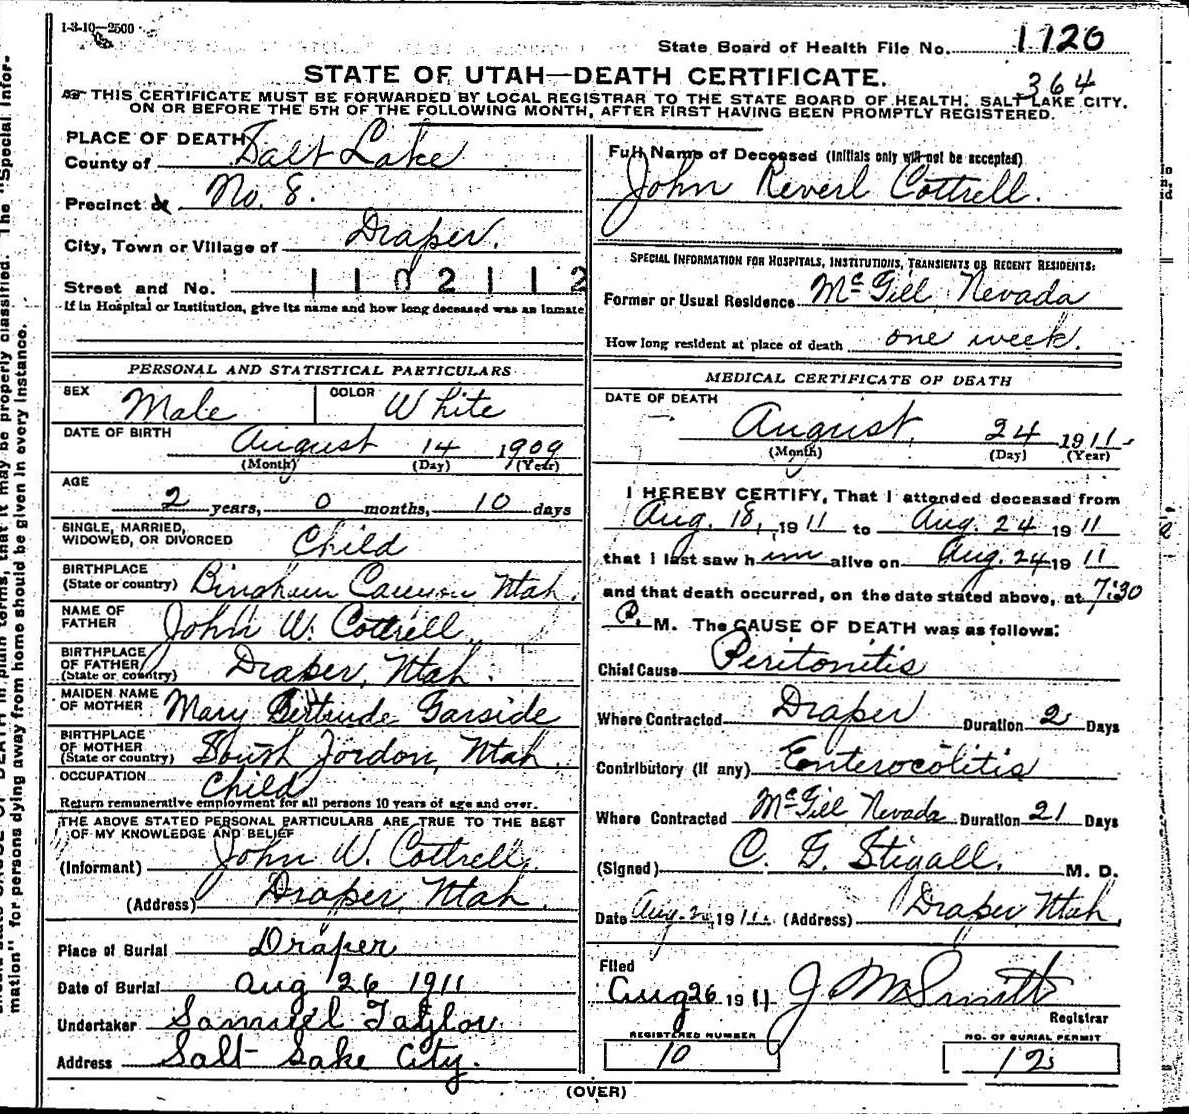 1-3-10—2500
State Board of Health File No. 1720
STATE OF UTAH—DEATH CERTIFICATE.
364
THIS CERTIFICATE MUST BE FORWARDED BY LOCAL REGISTRAR TO THE STATE BOARD OF HEALTH, SALT LAKE CITY,
ON OR BEFORE THE 5TH OF THE FOLLOWING MONTH, AFTER FIRST HAVING BEEN PROMPTLY REGISTERED.
PLACE OF DEATH
County of Salt Lake
Precinct or No. 8.
City, Town or Village of Draper.
Street and No. 1102112
If in Hospital or Institution, give its name and how long deceased was an inmate
PERSONAL AND STATISTICAL PARTICULARS
SEX Male COLOR White
DATE OF BIRTH August 14 1909
(Month) (Day) (Year)
AGE
2 years, 0 months, 10 days
SINGLE, MARRIED,
WIDOWED, OR DIVORCED Child
BIRTHPLACE
(State or country) Bingham Canyon Utah.
NAME OF
FATHER John W. Cottrell
BIRTHPLACE
OF FATHER
(State or country) Draper, Utah.
MAIDEN NAME
OF MOTHER Mary Gertrude Garside
BIRTHPLACE
OF MOTHER
(State or country) South Jordon, Utah.
OCCUPATION Child
Return remunerative employment for all persons 10 years of age and over.
THE ABOVE STATED PERSONAL PARTICULARS ARE TRUE TO THE BEST
OF MY KNOWLEDGE AND BELIEF
(Informant) John W. Cottrell.
(Address) Draper Utah.
Place of Burial Draper
Date of Burial Aug 26 1911
Undertaker Samuel Taylor
Address Salt Lake City.
Full Name of Deceased (Initials only will not be accepted)
John Reverl Cottrell.
SPECIAL INFORMATION FOR HOSPITALS, INSTITUTIONS, TRANSIENTS OR RECENT RESIDENTS:
Former or Usual Residence McGill Nevada
How long resident at place of death one week.
MEDICAL CERTIFICATE OF DEATH
DATE OF DEATH
August, 24 1911
(Month) (Day) (Year)
I HEREBY CERTIFY, That I attended deceased from
Aug. 18, 1911 to Aug. 24 1911
that I last saw him alive on Aug. 24 1911
and that death occurred, on the date stated above, at 7:30
P. M. The CAUSE OF DEATH was as follows:
Chief Cause Peritonitis
Where Contracted Draper Duration 2 Days
Contributory (If any) Enterocolitis
Where Contracted McGill Nevada Duration 21 Days
(Signed) C. G. Stigall. M. D.
Date Aug. 1911 (Address) Draper Utah.
Filed
Aug 26 1911 J M Smith
Registrar
REGISTERED NUMBER
10
NO. OF BURIAL PERMIT
12
(OVER)
in plain terms, that it may be properly classified. The "Special Infor-
mation" for persons dying away from home should be given in every instance.